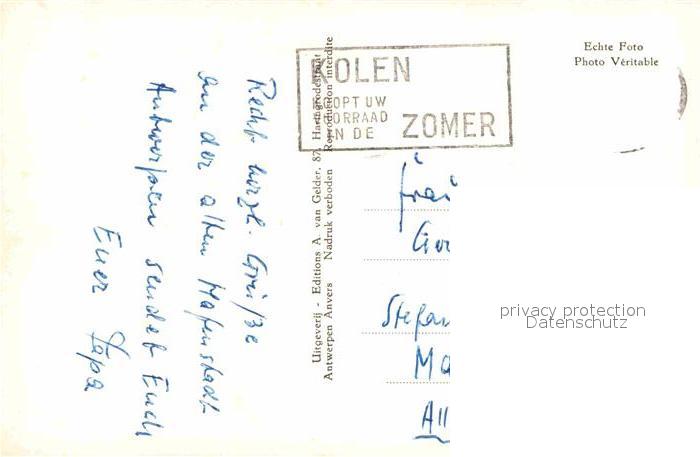 Recht herzl. Grüße
aus der alten Hafenstadt
Antwerpen sendet Euch
Euer Papa
Uitgeverij - Editions A. van Gelder, 87,
Antwerpen Anvers Nadruk verboden Reproduction interdite
KOLEN
KOOPT UW
VOORRAAD
IN DE ZOMER
Echte Foto
Photo Véritable
Stefan
Ma
All
privacy protection
Datenschutz